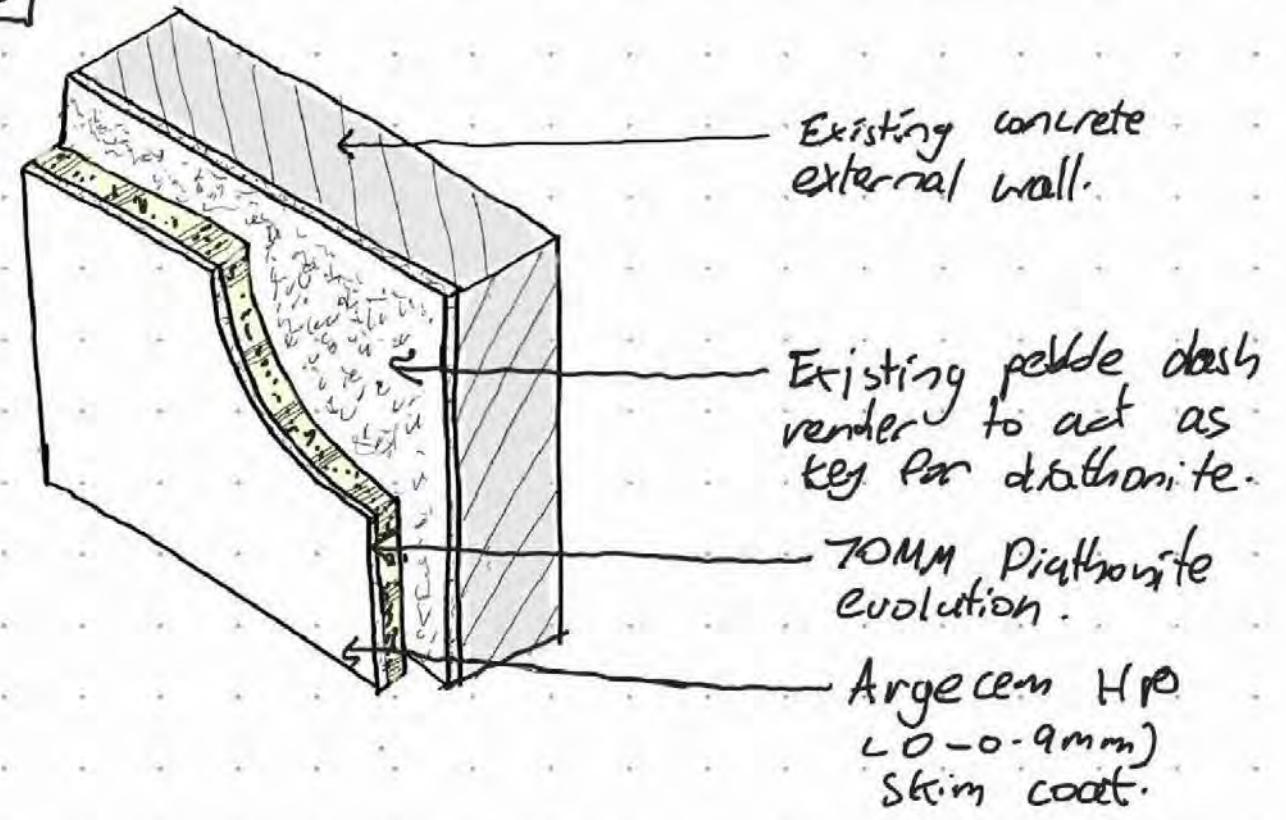 Existing concrete
external wall.
Existing pebble dash
render to act as
key for diathonite.
70MM Diathonite
evolution.
Argecem HPO
(0-0.9mm)
skim coat.